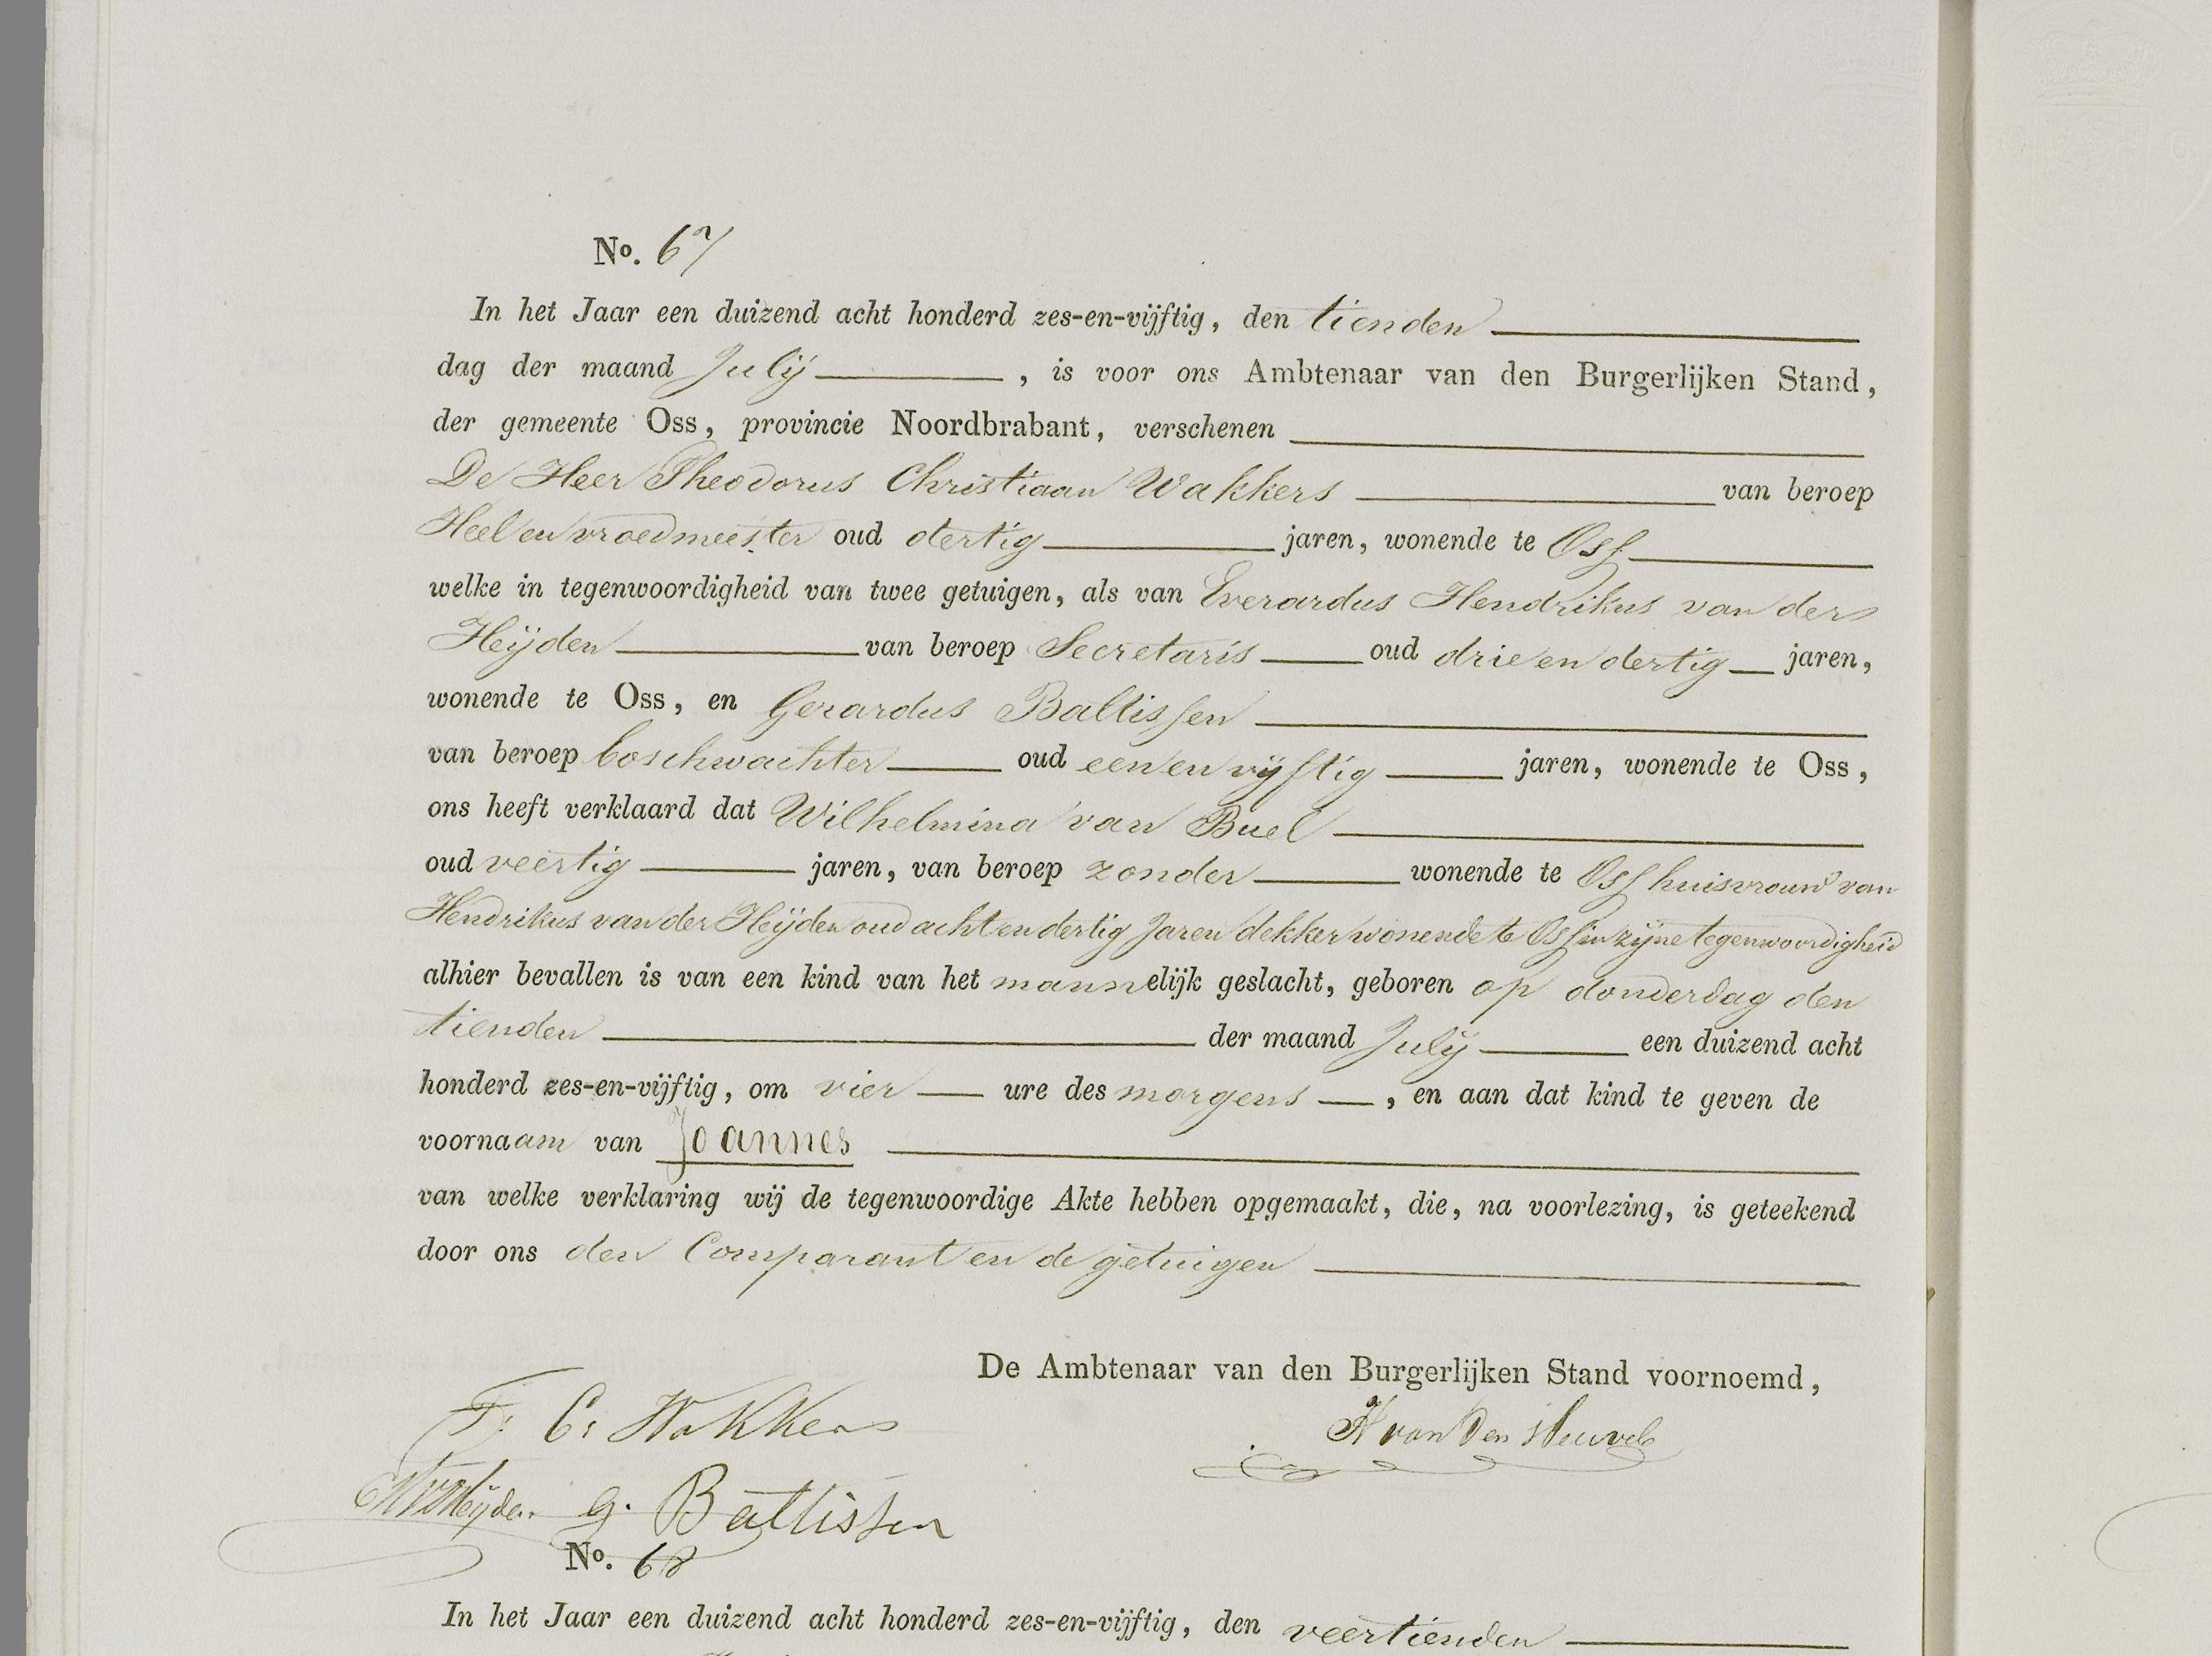 No. 67
In het Jaar een duizend acht honderd zes-en-vijftig, den tienden
dag der maand Julij, is voor ons Ambtenaar van den Burgerlijken Stand,
der gemeente Oss, provincie Noordbrabant, verschenen
De Heer Theodorus Christiaan Wakkers van beroep
Heel en vroedmeester oud dertig jaren, wonende te Oss
welke in tegenwoordigheid van twee getuigen, als van Everardus Hendrikus van der
Heijden van beroep Secretaris oud drie en dertig jaren,
wonende te Oss, en Gerardus Baltissen
van beroep boschwachter oud een en vijftig jaren, wonende te Oss,
ons heeft verklaard dat Wilhelmina van Buel
oud veertig jaren, van beroep zonder wonende te Oss huisvrouw van
Hendrikus van der Heijden oud acht en dertig Jaren dekker wonende te Oss in zijne tegenwoordigheid
alhier bevallen is van een kind van het mannelijk geslacht, geboren op donderdag den
tienden der maand Julij een duizend acht
honderd zes-en-vijftig, om vier ure des morgens, en aan dat kind te geven de
voornaam van Joannes
van welke verklaring wij de tegenwoordige Akte hebben opgemaakt, die, na voorlezing, is geteekend
door ons den Comparant en de getuigen
De Ambtenaar van den Burgerlijken Stand voornoemd,
T. C. Wakkers
H van den Heuvel
G. Baltissen
No. 68
In het Jaar een duizend acht honderd zes-en-vijftig, den veertienden